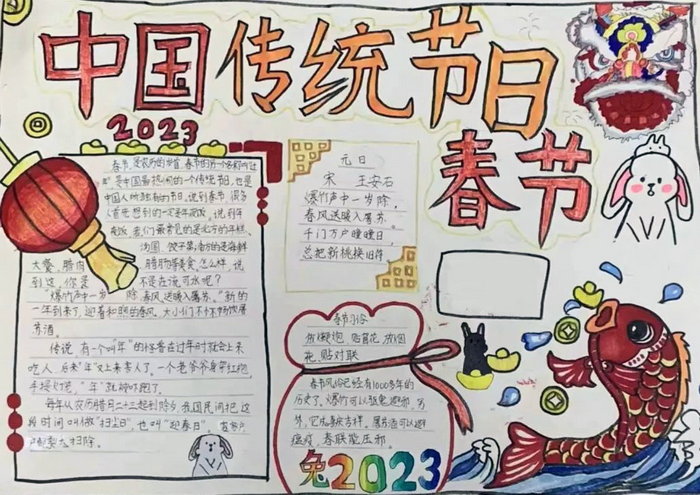 中国传统节日
春节
2023
春节是农历的岁首，春节的另一个名称叫过
年，是中国最热闹的一个传统节日，也是
中国人所独有的节日。说到春节，很多
人首先想到的一定是年夜饭，说到年
夜饭，我们最常见的是北方的年糕、
汤圆、饺子等，南方的是海鲜
大餐、腊肉、腊肠等美食，怎么样，说
到这，你是不是在流口水呢？
爆竹声中一岁除，春风送暖入屠苏。"新的
一年到来了，迎着和煦的春风，大小们不不畅饮屠
苏酒。
传说有一个叫"年"的怪兽在过年时就会上来
吃人，后来"年"又上来害人了，一个老爷爷身穿红袍，
手提灯笼，"年"就被吓跑了。
每年从农历腊月二十三起到除夕，我国民间把这
段时间叫做"扫尘日"，也叫"迎春日"，
大扫除。
元日
宋 王安石
爆竹声中一岁除，
春风送暖入屠苏。
千门万户曈曈日，
总把新桃换旧符
春节习俗
放鞭炮 贴窗花 放烟
花、贴对联
春节风俗已经有1000多年的
历史了，爆竹可以驱鬼避邪，另
外，它代表吉祥，屠苏酒可以避
瘟疫，春联能压邪。
兔2023